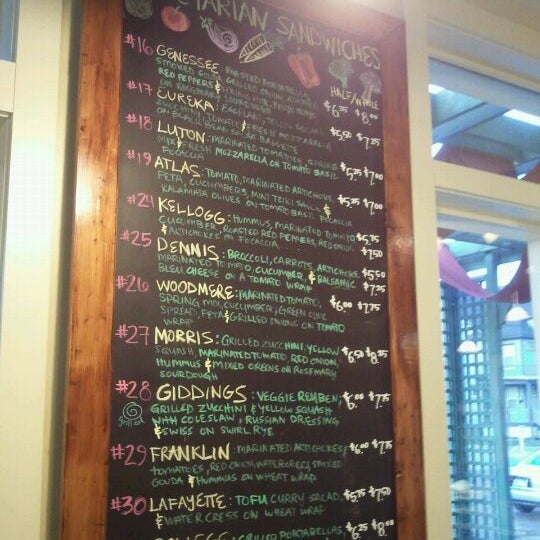 ETARIAN SANDWICHES
HALF/WHOLE
#16 GENESSEE: ROASTED PORTABELLA,
SMOKED GOUDA, GRILLED ONION, ROASTED
RED PEPPERS & SPRING MIX, PESTO MAYO
ON SOURDOUGH $6.25 $8.00
#17 EUREKA: EGGPLANT, YELLOW SQUASH,
ZUCCHINI, & FRESH MOZZARELLA
ON BLACK BEAN BAGUETTE $5.50 $7.25
#18 LUTON: MARINATED TOMATOES, SPRING
MIX & FRESH MOZZARELLA ON TOMATO BASIL
FOCACCIA $5.25 $7.00
#19 ATLAS: TOMATO, MARINATED ARTICHOKE,
FETA, CUCUMBERS, MINT TZIKI SAUCE &
KALAMATA OLIVES ON TOMATO BASIL FOCACCIA $5.25 $7.00
#24 KELLOGG: HUMMUS, MARINATED TOMATO,
CUCUMBER, ROASTED RED PEPPERS, RED ONION,
& ARTICHOKES ON FOCACCIA $5.75 $7.50
#25 DENNIS: BROCCOLI, CARROTS, ARTICHOKE,
MARINATED TOMATO, CUCUMBER & BALSAMIC
BLEU CHEESE ON A TOMATO WRAP $5.50 $7.25
#26 WOODMERE: MARINATED TOMATO,
SPRING MIX, CUCUMBER, GREEN OLIVE
SPREAD, FETA & GRILLED ONIONS ON TOMATO
WRAP $6.00 $7.75
#27 MORRIS: GRILLED ZUCCHINI, YELLOW
SQUASH, MARINATED TOMATO, RED ONION,
HUMMUS & MIXED GREENS ON ROSEMARY
SOURDOUGH $6.50 $8.25
#28 GIDDINGS: VEGGIE REUBEN,
GRILLED ZUCCHINI & YELLOW SQUASH
WITH COLESLAW, RUSSIAN DRESSING
& SWISS ON SWIRL RYE $6.00 $7.75
grilled
#29 FRANKLIN: MARINATED ARTICHOKES,
TOMATOES, RED ONION, WATERCRESS, SMOKED
GOUDA & HUMMUS ON WHEAT WRAP $6.00 $7.75
#30 LAFAYETTE: TOFU CURRY SALAD,
& WATER CRESS ON WHEAT WRAP $5.75 $7.50
COLLEGE: GRILLED PORTABELLAS, $6.25 $8.00